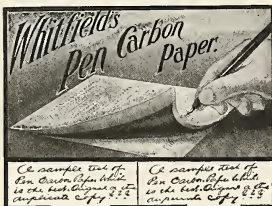 Whitfield's
Pen Carbon
Paper.
A sample test of
Pen Carbon Paper which
is the best. Original & its
duplicate copy
A sample test of
Pen Carbon Paper which
is the best. Original & its
duplicate copy